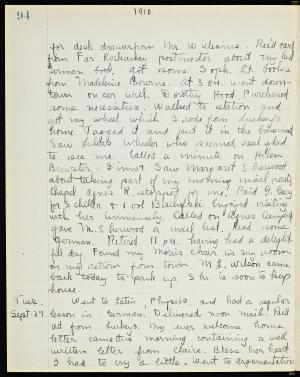 204 1910.
for desk drawer from Mr. Williams. Rec'd card
from Far Rockaway postmaster about my lost
German book. Got some Soph. Lit. books
from Madeleine Bourne. At 3 P.M. went down-
town on car with Dorothy Hood. Purchased
some necessities. Walked to station and
got my wheel which I rode from
home. Tagged it and put it in the basement.
Saw Wheeler who seemed real glad
to see me. Called a minute on Helen
Brewster. Dinner. Saw Margaret Sherwood
about taking part of my morning mail route.
Chapel. Agnes R. stopped for me. Paid G. Gay
for Schiller & I vol Enjoyed visiting
with her immensely. Called on Agnes
gave M. Sherwood a mail list. Read some
German. Retired 11 P.M. having had a delight-
ful day. Found my Morris chair in my room
on my return from town. M.L. Wilson came
back today to pack up. She is soon to keep
house.
Tues. Went to Latin, Physics, and had a regular
Sept. 27 lesson in German. Delivered noon mail. Rec'd
ad from My ever welcome home
letter came this morning containing a well
written letter from Claire. Bless her heart
I had to cry a little. Went to Argumentation